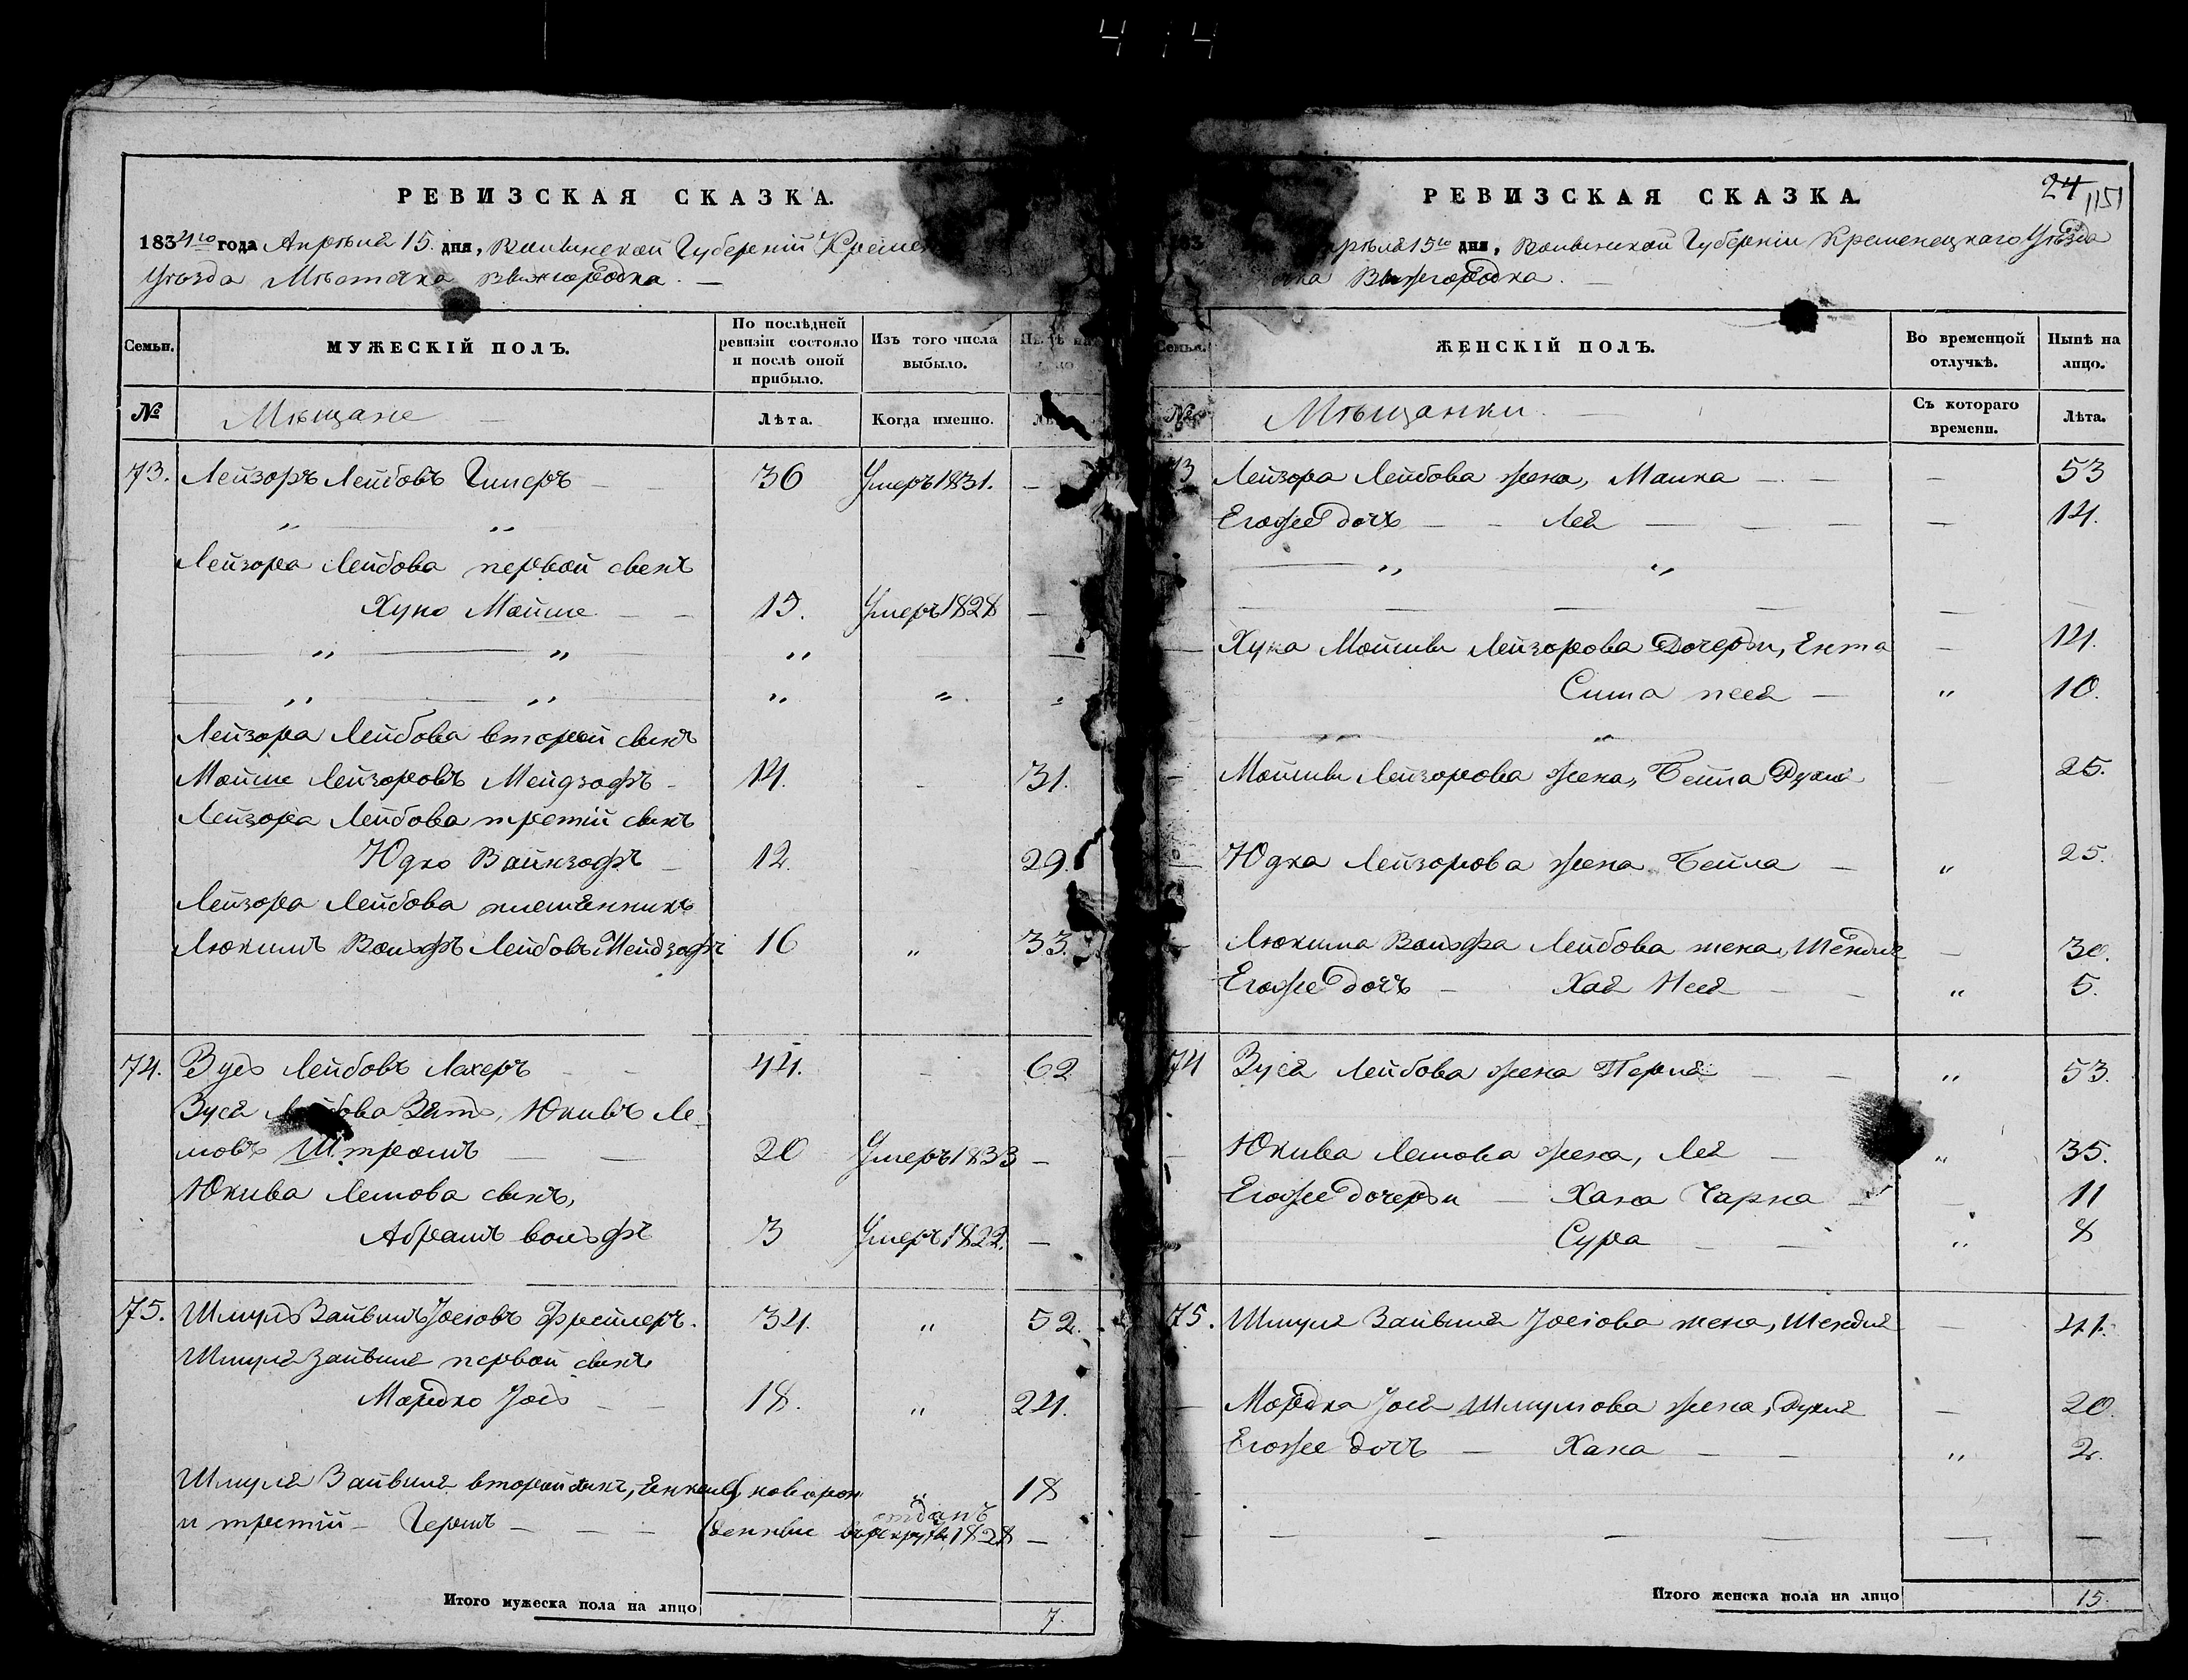 4 4
РЕВИЗСКАЯ СКАЗКА.
1834го года Апрѣля 15. дня, Волынской Губерніи
Уѣзда Мѣстечка Вышгородка. —
Семьи. МУЖЕСКІЙ ПОЛЪ. По послѣдней ревизіи состояло и послѣ оной прибыло. Изъ того числа выбыло.
№ Мѣщане — Лѣта. Когда именно.
73. Лейзоръ Лейбовъ — — 36 Умеръ 1831. —
Лейзора Лейбова первой сынъ
Хуно Мойше — — 15. Умеръ 1828 —
Лейзора Лейбова второй сынъ
Мойше Лейзоровъ Мейдзофъ — 14. - 31.
Лейзора Лейбова третій сынъ
Юдко Вайнзофъ — 12. - 29.
Лейзора Лейбова племянникъ
Вольфъ Лейбовъ Мейдзофъ 16 „ 33.
74. Зусь Лейбовъ Лахеръ — — 44. - 62
Зуся Лейбова Зять, Юкивъ Ле-
мовъ Штромъ — — 20 Умеръ 1833 —
Юкива Лемова сынъ,
Абрамъ вольфъ 3 Умеръ 1822. —
75. Шмуль Зайвель Іосіовъ Фрейлеръ. 34. „ 52.
Шмуля Зайвеля первой сынъ
Мордко Іось — — 18. „ 24.
Шмуля Зайвеля второй сынъ, новорож „ 18
и третій — Гершъ — — — денные отданъ въ рекруты 1828 —
Итого мужеска пола на лицо 7.
РЕВИЗСКАЯ СКАЗКА.
24
1151
15го дня, Волынской Губерніи Кременецкаго Уѣзда
Вышгородка. —
Семьи. ЖЕНСКІЙ ПОЛЪ. Во временной отлучкѣ. Нынѣ на лицо.
№ Мѣщанки — Съ котораго времени. Лѣта.
73 Лейзора Лейбова жена, Малка — — — 53
Егоже дочь — — Лея — — — — 14.
Хуна Мойши Лейзорова Дочери, Ента — 14.
Сима — „ 10.
Мойши Лейзорова жена, Бейла 25.
Юдка Лейзорова жена Бейла — „ 25.
Вольфа Лейбова жена, Шендля — 30.
Егоже дочь — Хая — — „ 5.
74 Зуся Лейбова жена Перля — — „ 53.
Юкива Лемова жена, Лея — „ 35.
Егоже дочери — Хана Чарна — 11
Сура — — „ 8
75. Шмуля Зайвеля Іосіова жена, Шендля — 41.
Мордка Іося Шмулова жена, — 20.
Егоже дочь — Хана — — „ 2.
Итого женска пола на лицо 15.